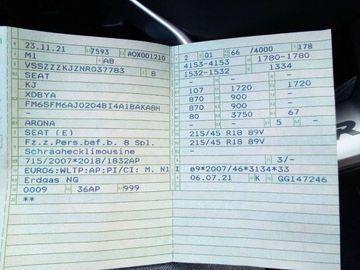 23.11.21 7593 AOX001210
M1 AB
VSSZZZKJZNR037783 8
SEAT
KJ
XDBYA
FM6SFM6AJ0204BI4A1BAKA8H
ARONA
SEAT (E)
Fz.z.Pers.bef.b. 8 Spl.
Schräghecklimousine
715/2007*2018/1832AP
EURO6:WLTP:AP:PI/CI: M, N1 I
Erdgas NG
0009 36AP 999
**
2 01 66 /4000 178
4153-4153 1780-1780
1532-1532 1334
- - -
107 1720 - 1720
870 900 - -
870 900 - -
80 3750 67
- - 5 -
215/45 R18 89V
215/45 R18 89V
-
- 3/-
e9*2007/46*3134*33
06.07.21 K GG147246